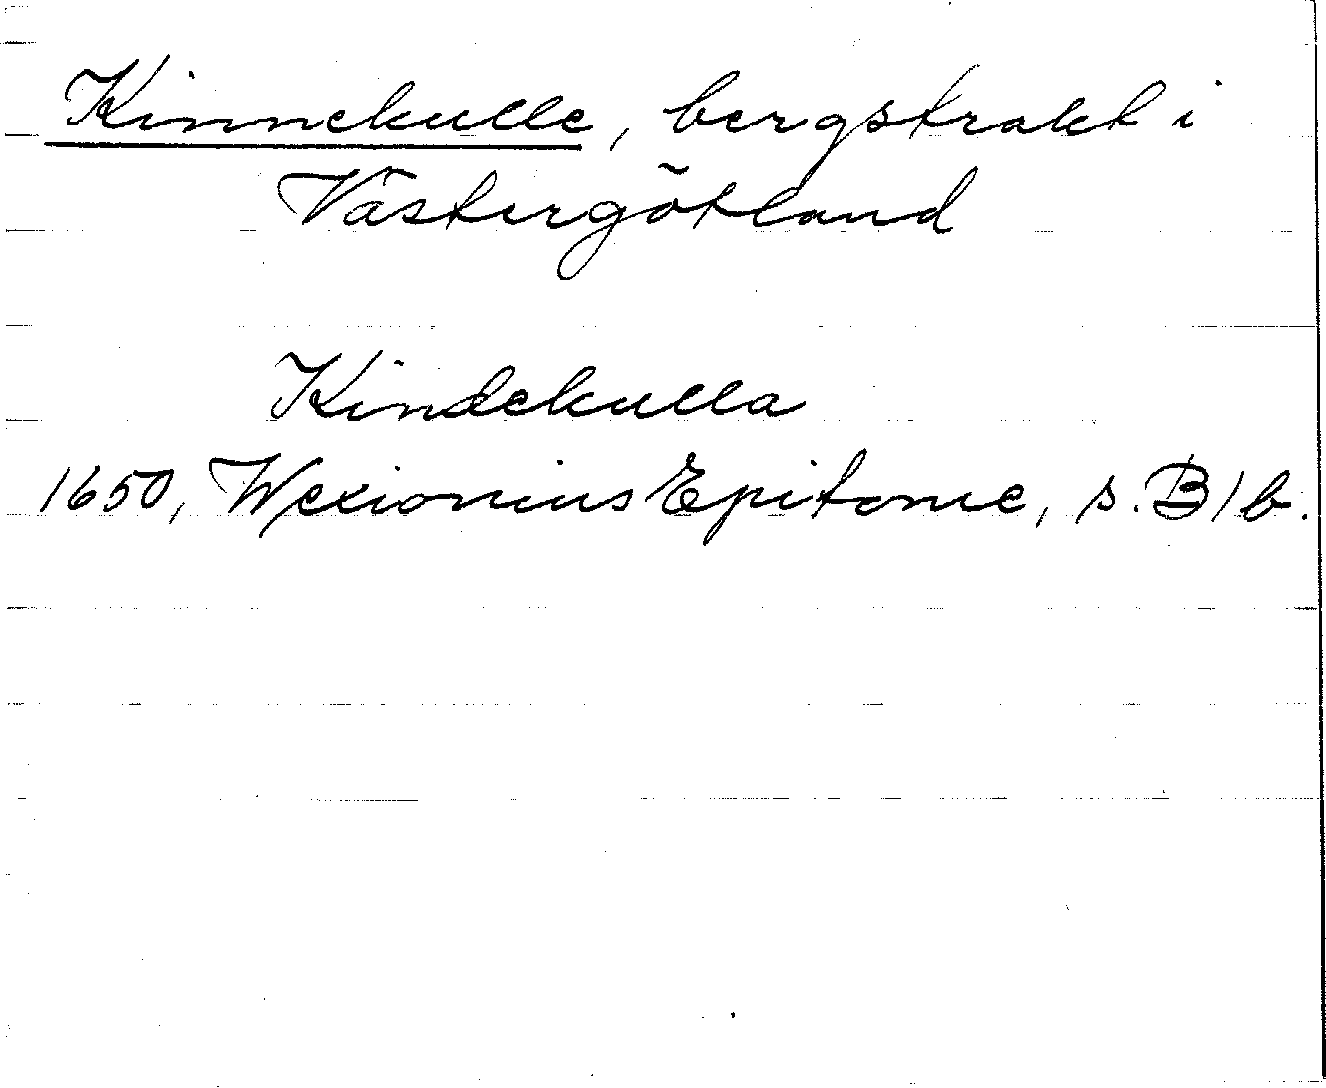 Kinnekulle, bergstrakt i
Västergötland
Kindekulla
1650, Wexionius Epitome, s. B1b.